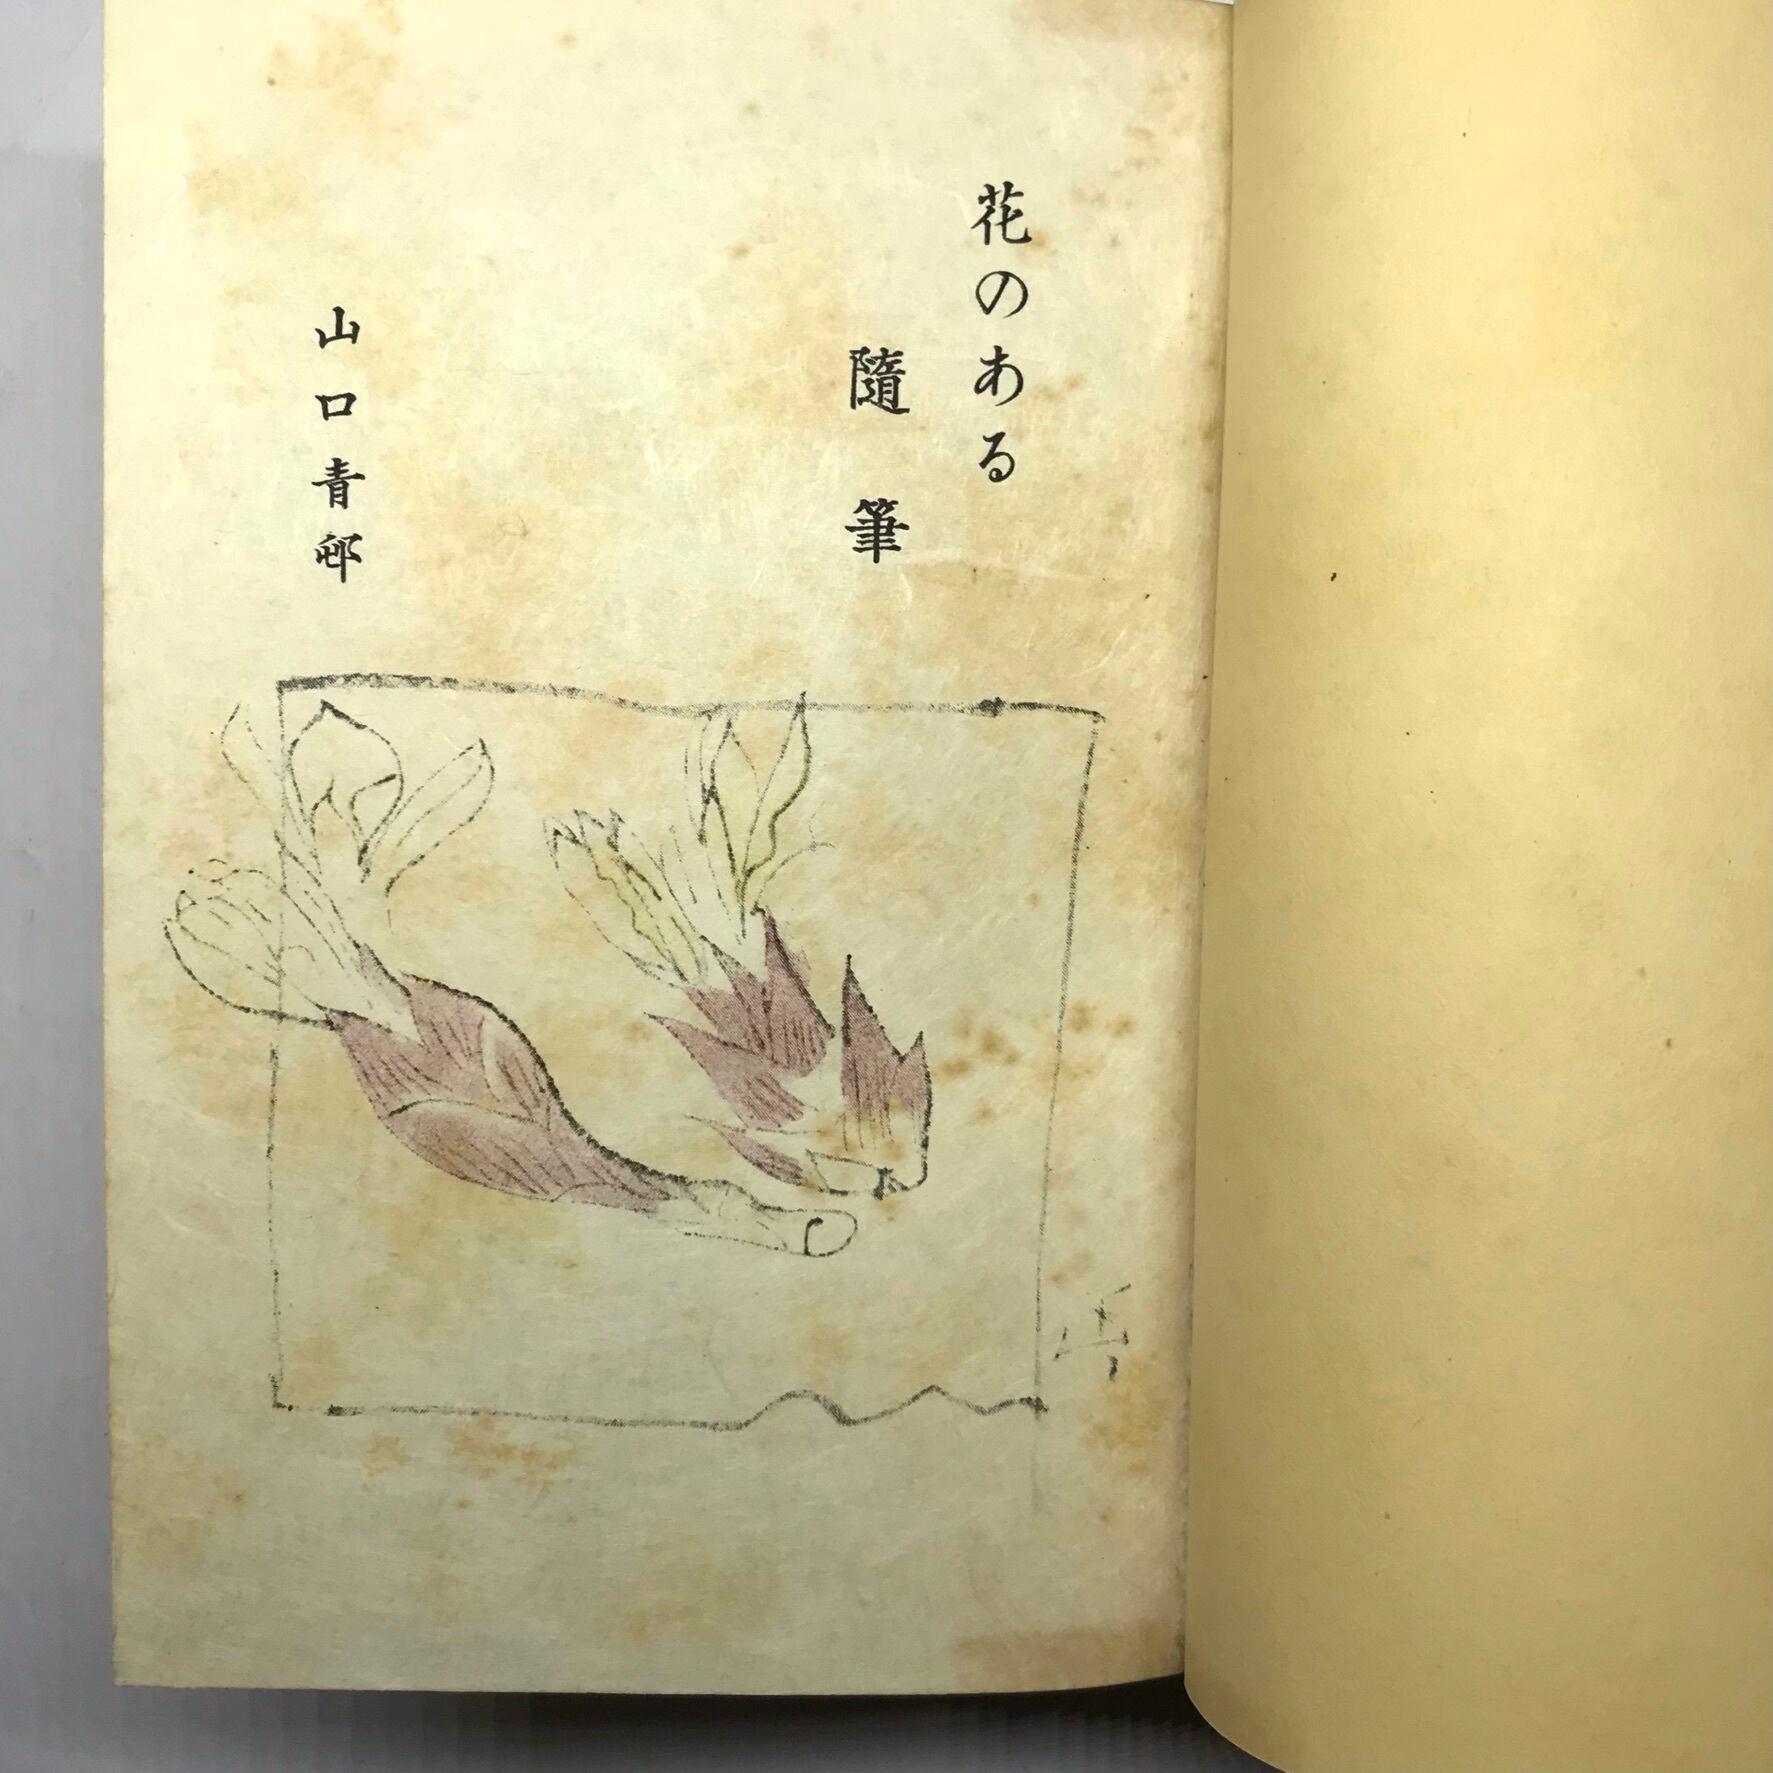 花のある
隨筆
山口青邨